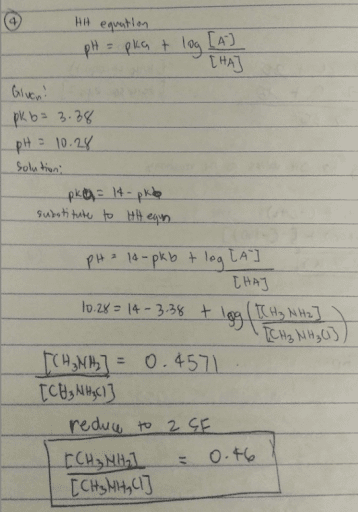 ④ HH equation
pH = pka + log [A⁻]
[HA]
Given:
pkb = 3.38
pH = 10.28
Solution:
pka = 14 - pkb
substitute to HH eqn
pH = 14 - pkb + log [A⁻]
[HA]
10.28 = 14 - 3.38 + log ([CH3NH2]
[CH3NH3Cl])
[CH3NH2] = 0.4571
[CH3NH3Cl]
reduce to 2 SF
[CH3NH2] = 0.46
[CH3NH3Cl]